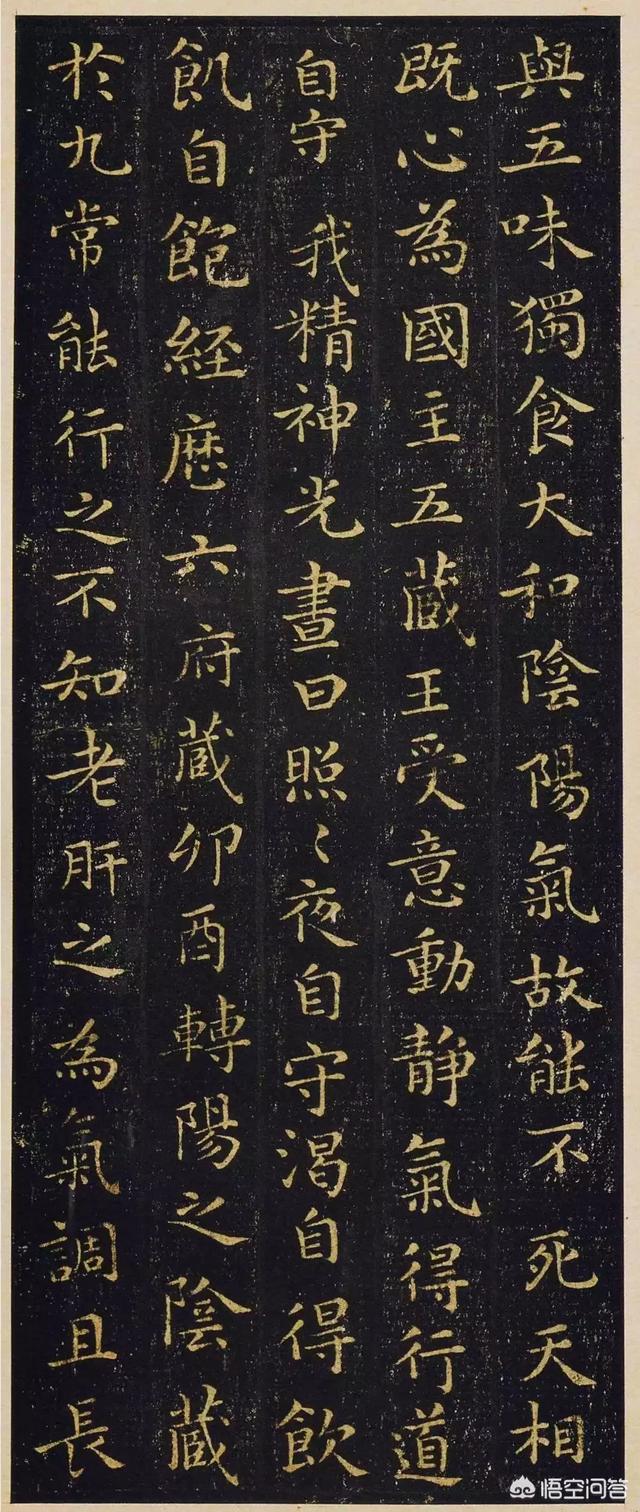 與五味獨食大和陰陽氣故能不死天相
既心為國主五藏王受意動靜氣得行道
自守我精神光晝日照〻夜自守渴自得飲
飢自飽経歷六府藏卯酉轉陽之陰藏
於九常能行之不知老肝之為氣調且長
悟空问答